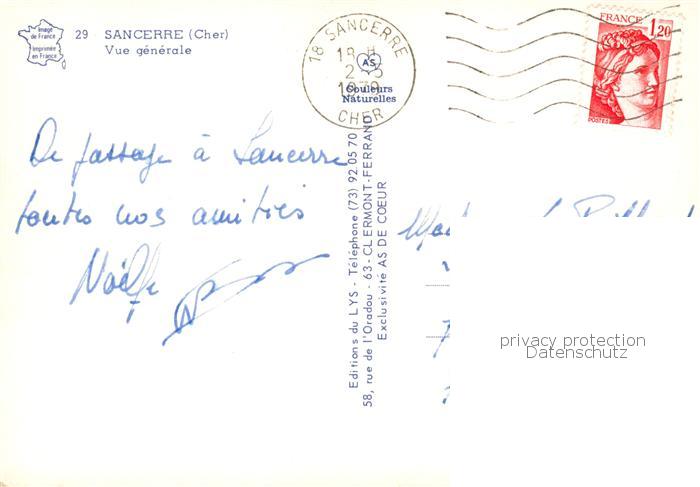 Image
de France
Imprimée
en France
29 SANCERRE (Cher)
Vue générale
18 SANCERRE
18 H
2 - 5
1979
CHER
AS
Couleurs
Naturelles
FRANCE
1,20
POSTES
De passage à Sancerre
toutes nos amitiés
Noëlle
Editions du LYS - Téléphone (73) 92.05 70
58, rue de l'Oradou - 63-CLERMONT-FERRAND
Exclusivité AS DE COEUR
privacy protection
Datenschutz